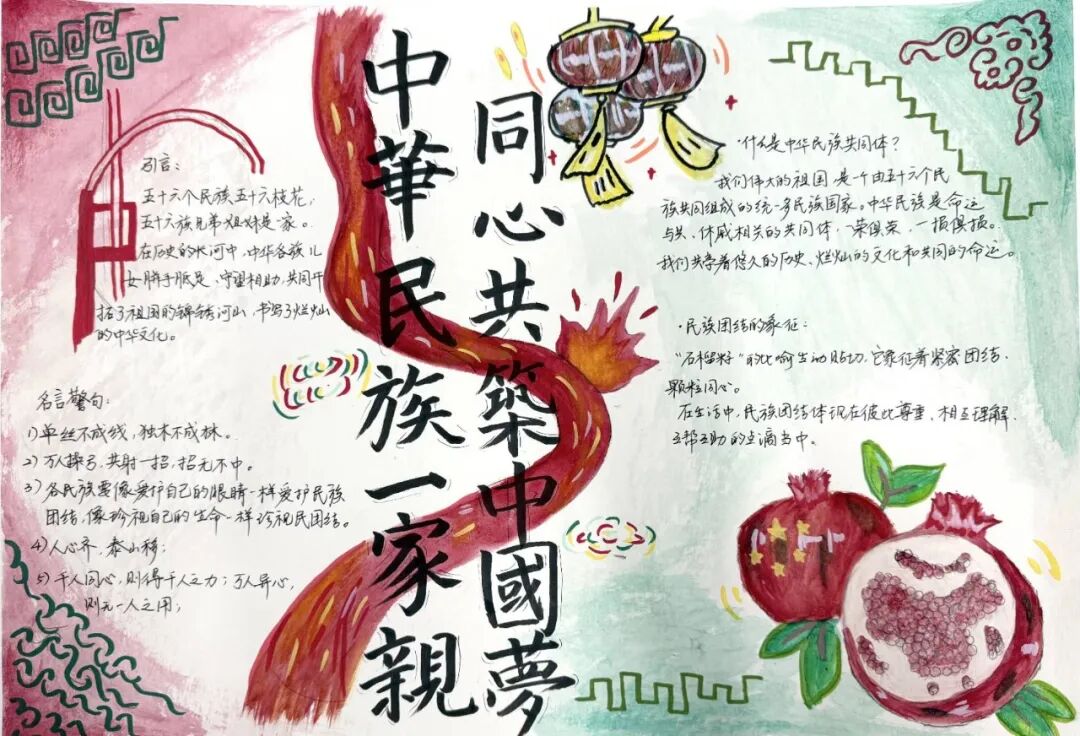 中華民族一家親
同心共築中國夢
引言：
五十六个民族五十六枝花，
五十六族兄弟姐妹是一家。
在历史的长河中，中华各族儿
女胼手胝足、守望相助，共同开
拓了祖国的锦绣河山，书写了灿烂
的中华文化。
名言警句：
1)单丝不成线，独木不成林。
2)万人操弓，共射一招，招无不中。
3)各民族要像爱护自己的眼睛一样爱护民族
团结，像珍视自己的生命一样珍视民团结。
4)人心齐，泰山移；
5)千人同心，则得千人之力；万人异心，
则无一人之用；
·什么是中华民族共同体？
我们伟大的祖国，是一个由五十六个民
族共同组成的统一多民族国家。中华民族是命运
与共、休戚相关的共同体，一荣俱荣，一损俱损。
我们共享着悠久的历史、灿烂的文化和共同的命运。
·民族团结的象征：
“石榴籽”的比喻生动贴切，它象征着紧密团结、
颗粒同心。
在生活中，民族团结体现在彼此尊重、相互理解、
互帮互助的点滴当中。